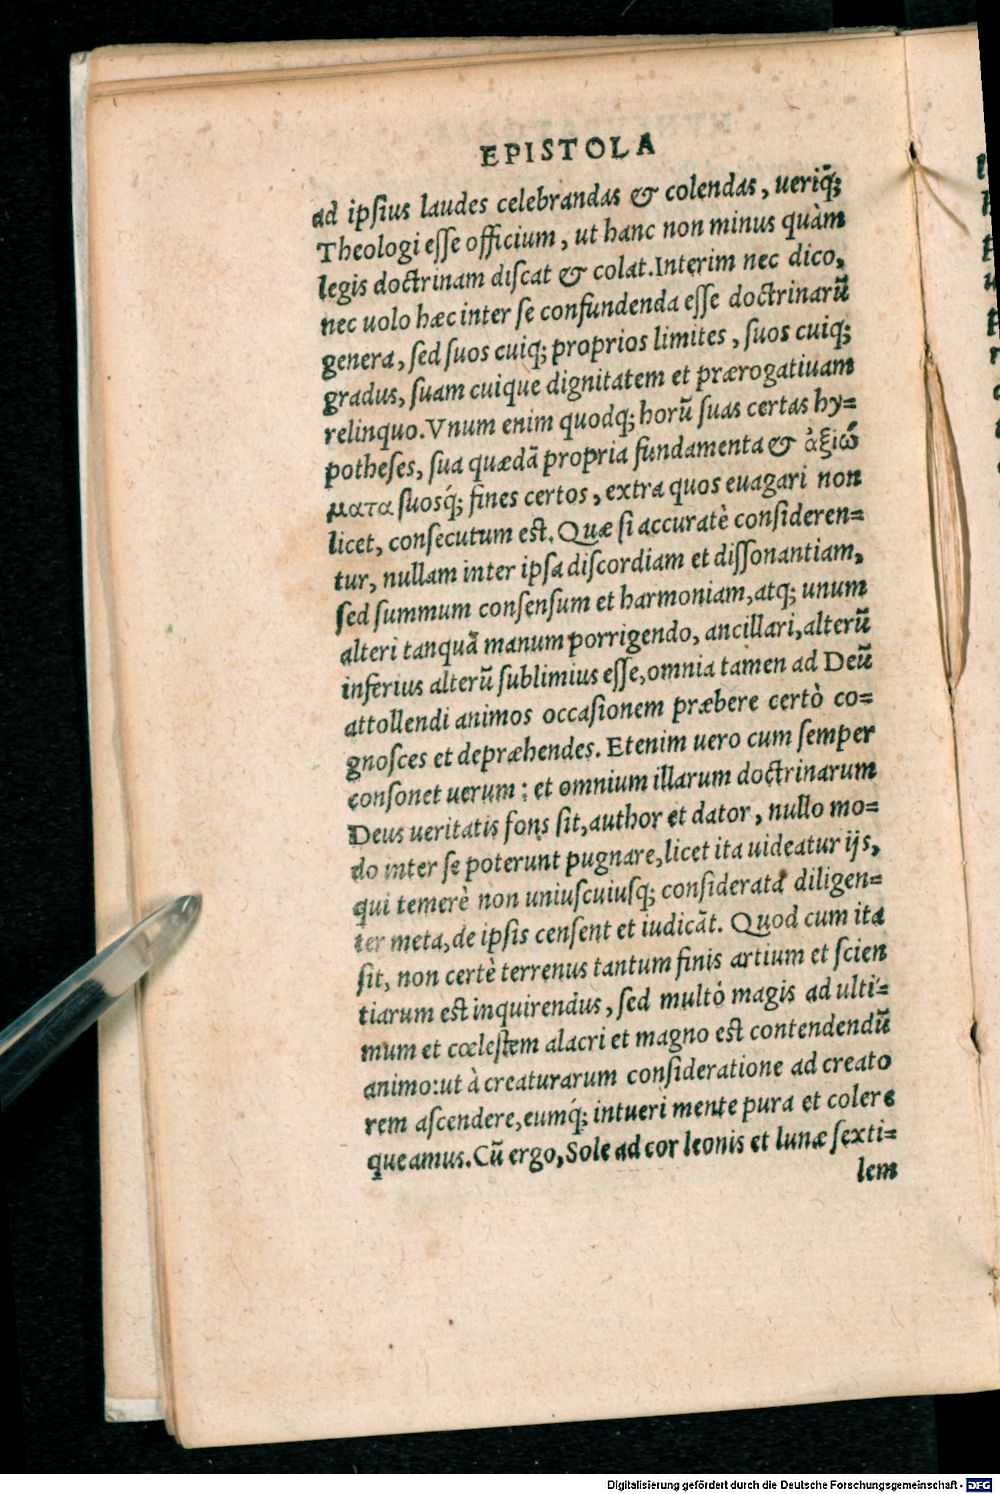 EPISTOLA
ad ipſius laudes celebrandas & colendas, ueriq́;
Theologi eſſe officium, ut hanc non minus quàm
legis doctrinam diſcat & colat. Interim nec dico,
nec uolo hæc inter ſe confundenda eſſe doctrinarũ
genera, ſed ſuos cuiq; proprios limites, ſuos cuiq;
gradus, ſuam cuique dignitatem et prærogatiuam
relinquo. Vnum enim quodq; horũ ſuas certas hy=
potheſes, ſua quædã propria fundamenta & ἀξιώ
ματα ſuosq́; fines certos, extra quos euagari non
licet, conſecutum est. Quæ ſi accuratè conſideren=
tur, nullam inter ipſa diſcordiam et diſſonantiam,
ſed ſummum conſenſum et harmoniam, atq; unum
alteri tanquã manum porrigendo, ancillari, alterũ
inferius alterũ ſublimius eſſe, omnia tamen ad Deũ
attollendi animos occaſionem præbere certò co=
gnoſces et depræhendes. Etenim uero cum ſemper
conſonet uerum: et omnium illarum doctrinarum
Deus ueritatis fons ſit, author et dator, nullo mo=
do inter ſe poterunt pugnare, licet ita uideatur ijs,
qui temerè non uniuſcuiuſq; conſiderata diligen=
ter meta, de ipſis cenſent et iudicãt. Quod cum ita
ſit, non certè terrenus tantum finis artium et ſcien
tiarum est inquirendus, ſed multò magis ad ulti=
mum et cœlestem alacri et magno est contendendũ
animo: ut à creaturarum conſideratione ad creato
rem aſcendere, eumq́; intueri mente pura et colere
queamus. Cũ ergo, Sole ad cor leonis et lunæ ſexti=
lem
Digitalisierung gefördert durch die Deutsche Forschungsgemeinschaft - DFG